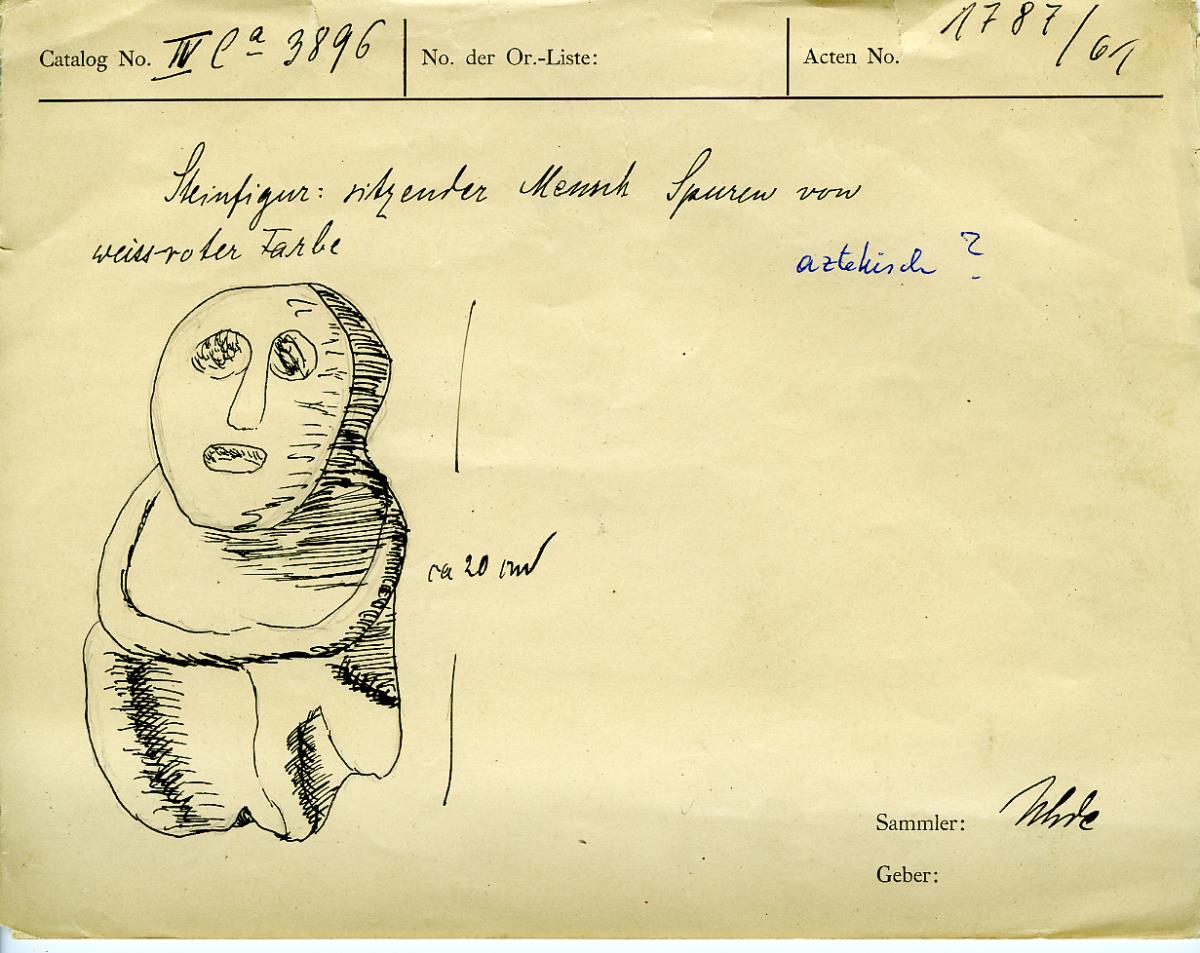 Catalog No. IV Ca 3896 No. der Or.-Liste: Acten No. 1787/61
Steinfigur: sitzender Mensch Spuren von
weiss-roter Farbe
aztekisch ?
ca 20 cm
Sammler: Uhde
Geber: